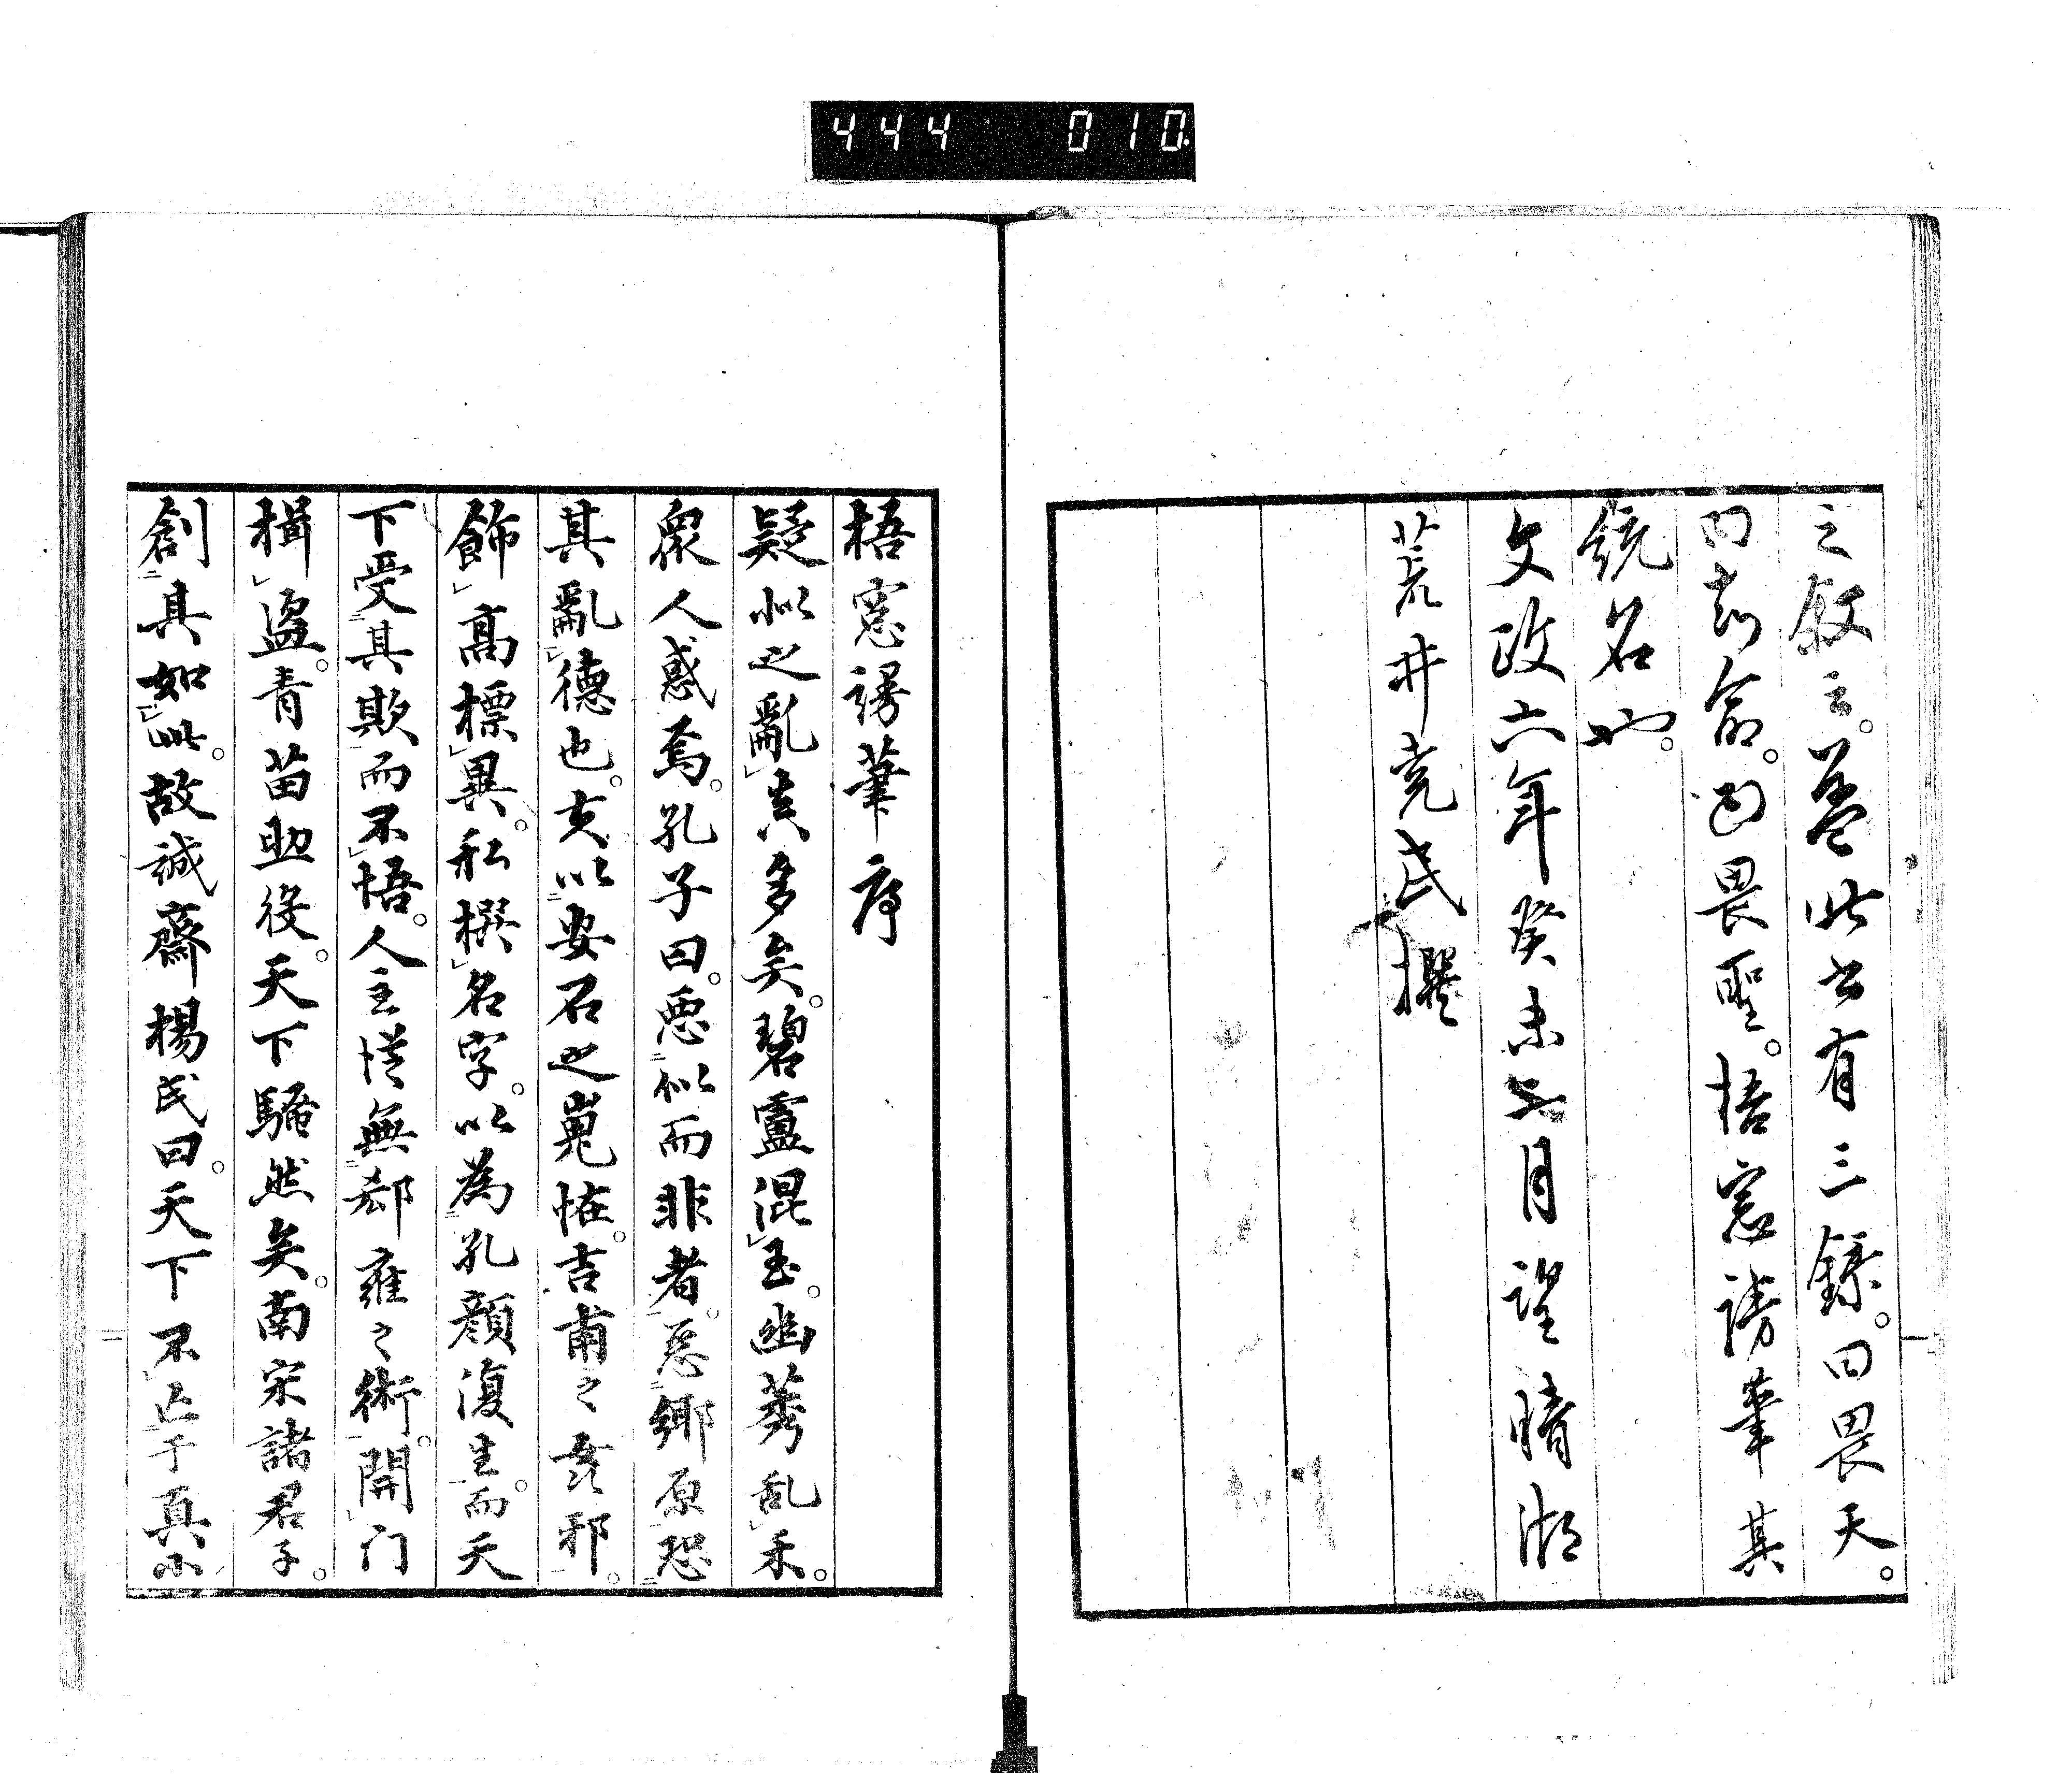 444 010
之叙云。蓋此書有三録。曰畏天。
曰畏命。曰畏聖。梧窓謾筆其
統名也。
文政六年癸未七月望晴湖
荒井堯民撰
梧窓謾筆序
疑似之亂真多矣。碧盧混玉。幽莠乱禾。
衆人惑焉。孔子曰。惡似而非者。惡鄉原恐
其亂德也。夫以安石之嵬恠。吉甫之姦邪。
飾高標異。私撰名字。以為孔顏復生。而天
下受其欺而不悟。人主憒無郄雍之術。開门
楫盜。青苗助役。天下騷然矣。南宋諸君子。
創其如此。故誠齋楊氏曰。天下不亡于真小